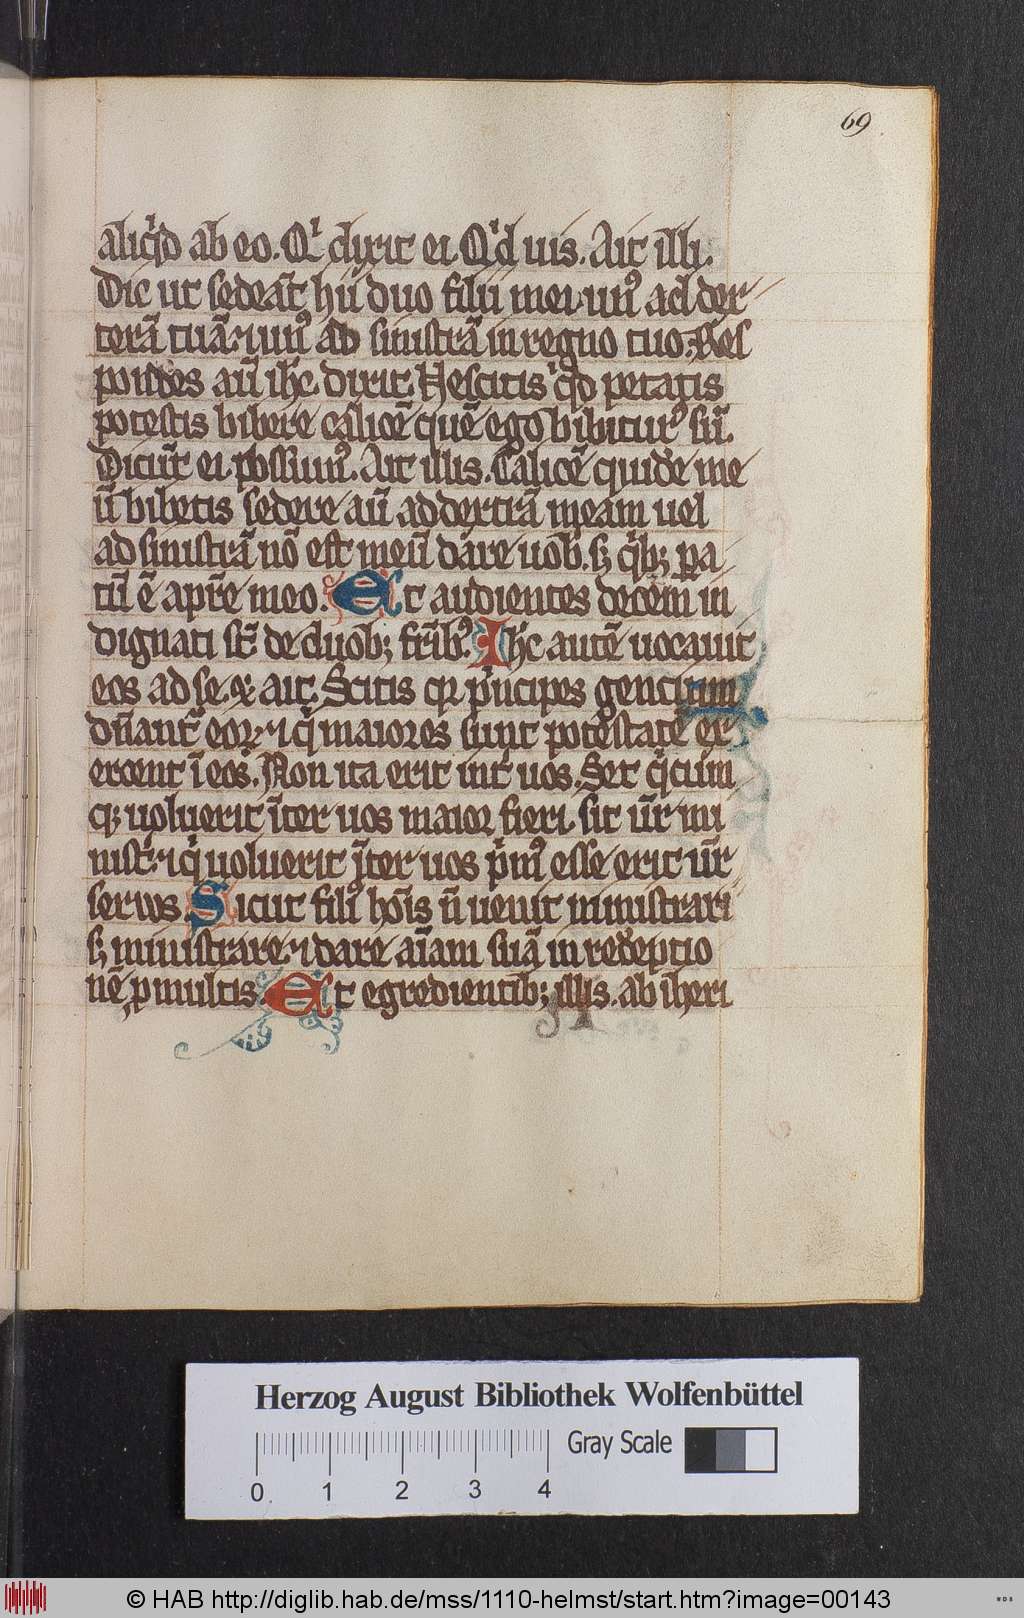 69
aliq͛d ab eo. Qͥ dixit ei. Qͥd uis. Ait illi.
Dic ut sedeāt hii duo filii mei. unꝰ ad dex
terā tuā. ⁊ unꝰ ad sinistrā in regno tuo. Res
pondes aū ihc̄ dixit. Nescitis qͥd petatis
potestis bibere calicē quē ego bibiturꝰ sū.
Dicūt ei. possumꝰ. Ait illis. Calicē quidē me
ū bibetis sedere aū ad dextrā meam uel
ad sinistrā nō est meū dare uob̄. sꝫ qͥbꝫ ꝑa
tū ē a pr̄e meo. Et audientes decem in
dignati st̄ de duobꝫ fr̄ibꝰ. Ihc̄ autē uocauit
eos ad se ⁊ ait. Scitis qꝛ pͥncipes gentium
dn̄ant᷑ eoꝝ. ⁊ qͥ maiores sunt potestatē ex
ercent ī eos. Non ita erit int̄ uos. Set qͥcum
qꝫ uoluerit īter uos maior fieri. sit ur̄ mi
nist̄. ⁊ qͥ uoluerit īter uos pͥmꝰ esse erit ur̄
seruus. Sicut filiꝰ hoīs n̄ uenit ministrari
sꝫ ministrare. ⁊ dare aīam suā in redēptio
nē ꝓ multis. Et egredientibꝫ illis. ab iheri
Herzog August Bibliothek Wolfenbüttel
Gray Scale
0 1 2 3 4
© HAB http://diglib.hab.de/mss/1110-helmst/start.htm?image=00143